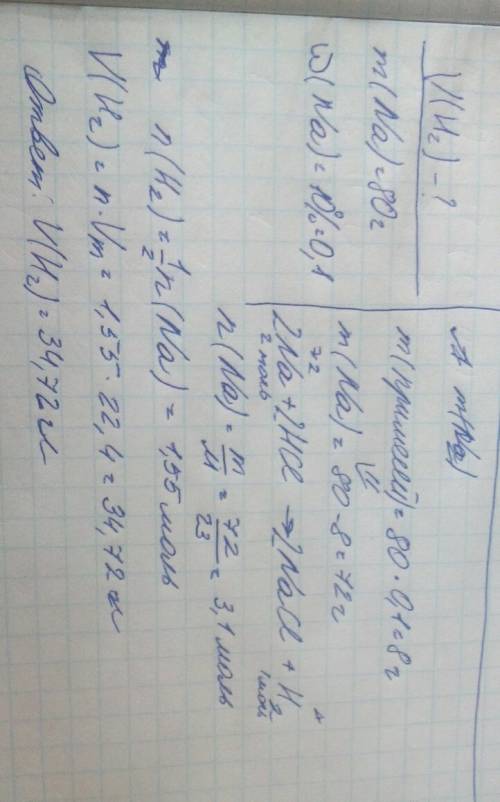 V(H₂) - ?
m(Na) = 80 г
ω(Na) = 10% = 0,1
m(Na)
m(примесей) = 80 · 0,1 = 8 г
m(Na) = 80 - 8 = 72 г
72
2Na + 2HCl → 2NaCl + H₂
2 моль 1 моль
n(Na) = m/M = 72/23 = 3,1 моль
n(H₂) = 1/2 n(Na) = 1,55 моль
V(H₂) = n · Vm = 1,55 · 22,4 = 34,72 л
Ответ: V(H₂) = 34,72 л